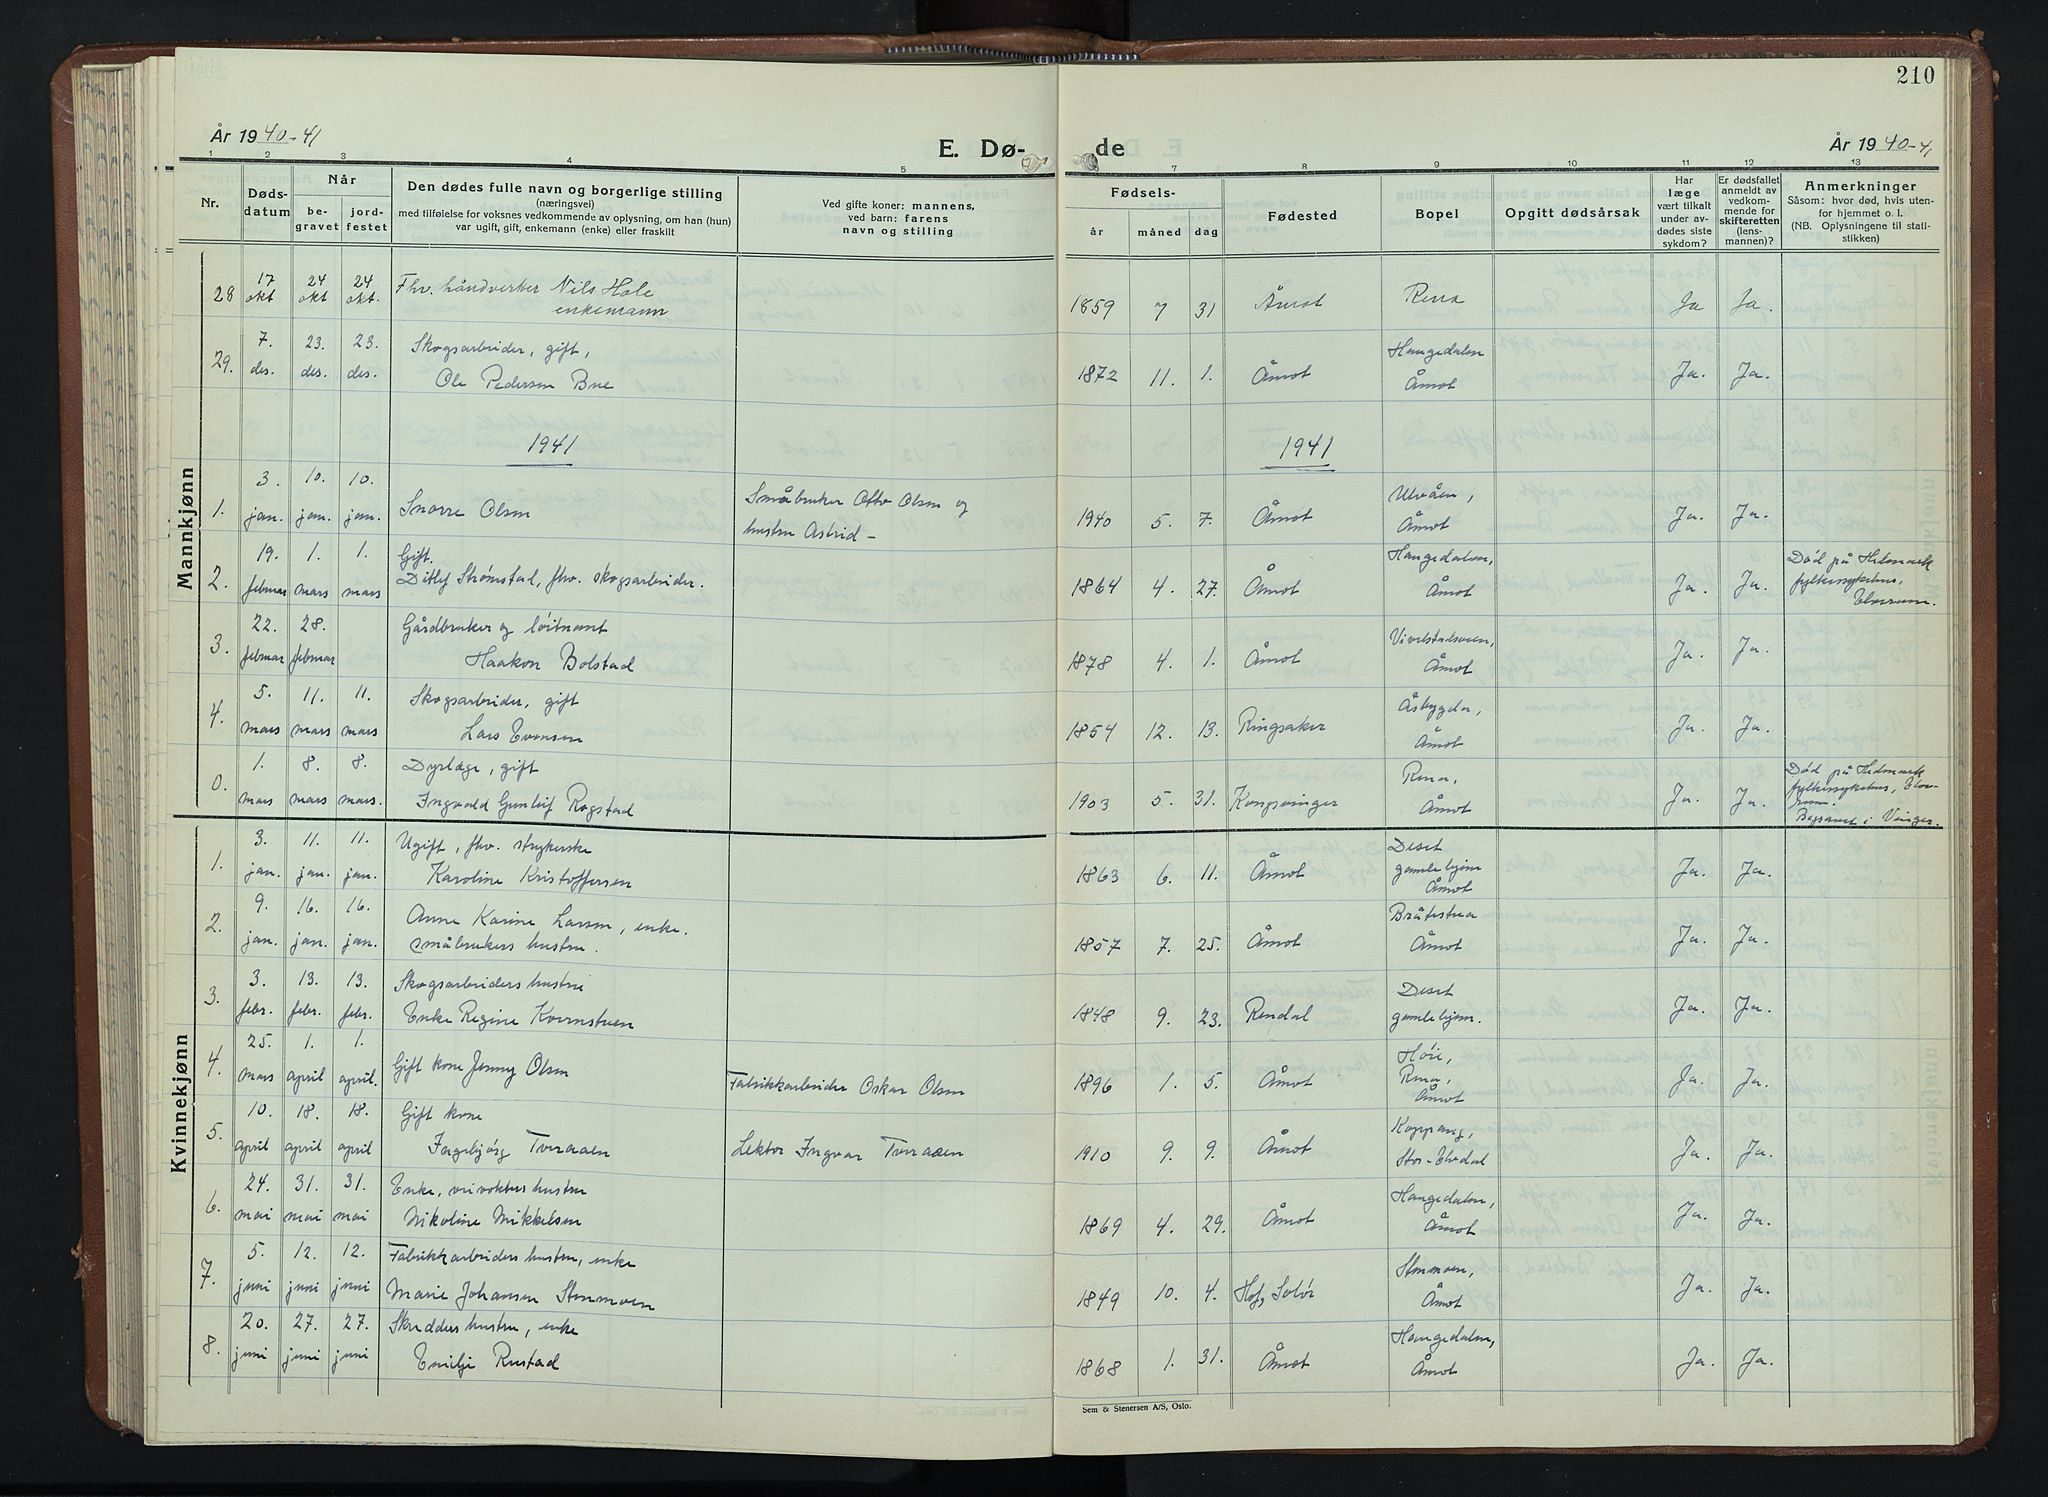 210
År 1940-41
E. Dø-
de
År 1940-41
1 2 3 4 5 6 7 8 9 10 11 12 13
Nr.
Døds-
datum
Når
be-
gravet
jord-
festet
Den dødes fulle navn og borgerlige stilling
(næringsvei)
med tilføielse for voksnes vedkommende av oplysning, om han (hun)
var ugift, gift, enkemann (enke) eller fraskilt
Ved gifte koner: mannens,
ved barn: farens
navn og stilling
Fødsels-
år måned dag
Fødested
Bopel
Opgitt dødsårsak
Har
læge
vært tilkalt
under av-
dødes siste
sykdom?
Er dødsfallet
anmeldt av
vedkom-
mende for
skifteretten
(lens-
mannen)?
Anmerkninger
Såsom: hvor død, hvis uten-
for hjemmet o. l.
(NB. Oplysningene til stati-
stikken)
Mannkjønn
28 17 okt 24 okt 24 okt. Fhv. håndverker Nils Hole
enkemann
1859 7 31 Åmot Rena Ja Ja.
29. 7. des. 23. des. 23. des. Skogsarbeider, gift,
Ole Pedersen Bue
1872 11. 1. Åmot Haugedalen
Åmot Ja. Ja.
1941 1941
1. 3. jan. 10. jan. 10. jan. Snorre Olsen
Småbruker Otto Olsen og
hustru Astrid –
1940 5. 7. Åmot Ulvåen,
Åmot Ja. Ja.
2. 19. februar 1. mars 1. mars Gift.
Ditlef Strømstad, fhv. skogsarbeider.
1864 4. 27. Åmot Haugedalen,
Åmot Ja. Ja. Død på Hedmark
fylkessykehus,
Elverum.
3. 22. februar 28. februar Gårdbruker og løitnant
Haakon Bolstad
1878 4. 1. Åmot
Åmot Ja. Ja.
4. 5. mars 11. mars 11. mars Skogsarbeider, gift
Lars Evensen
1854 12. 13. Ringsaker Åsbygda,
Åmot Ja. Ja.
0. 1. mars 8. mars 8. mars. Dyrlæge, gift
Ingvald Gunleif Rogstad
1903 5. 31. Kongsvinger Rena,
Åmot Ja. Ja. Død på Hedmark
fylkessykehus, Elve-
rum.
Begravet i Vinger.
Kvinnekjønn
1. 3. jan. 11. jan. 11. jan. Ugift, fhv. strykerske
Karoline Kristoffersen
1863 6. 11. Åmot Deset
gamlehjem
Åmot Ja. Ja.
2. 9. jan. 16. jan. 16. jan. Anne Karine Larsen, enke.
småbrukers hustru.
1857 7. 25. Åmot
Åmot Ja. Ja.
3. 3. febr. 13. febr. 13. febr. Skogsarbeiders hustru
Enke Regine Kvernstuen
1848 9. 23. Rendal Deset
gamlehjem. Ja. Ja.
4. 25. mars 1. april 1. april. Gift kone Jenny Olsen
Fabrikkarbeider Oskar Olsen
1896 1. 5. Åmot
Rena,
Åmot Ja. Ja.
5. 10. april 18. april 18. april Gift kone
Ingebjørg Tveraaen
Lektor Ingvar Tveraaen
1910 9. 9. Åmot Koppang,
Stor-Elvedal Ja. Ja.
6. 24. mai 31. mai 31. mai Enke, veivokters hustru
Nikoline Mikkelsen
1869 4. 29. Åmot Haugedalen,
Åmot Ja. Ja.
7. 5. juni 12. juni 12. juni Fabrikkarbeiders hustru, enke
Marie Johansen Stenmoen
1849 10. 4. Hof, Solør Stenmoen,
Åmot Ja. Ja.
8. 20. juni 27. juni 27. juni Skredders hustru, enke
Emilje Rustad
1868 1. 31. Åmot Haugedalen,
Åmot Ja. Ja.
Sem & Stenersen A/S, Oslo.